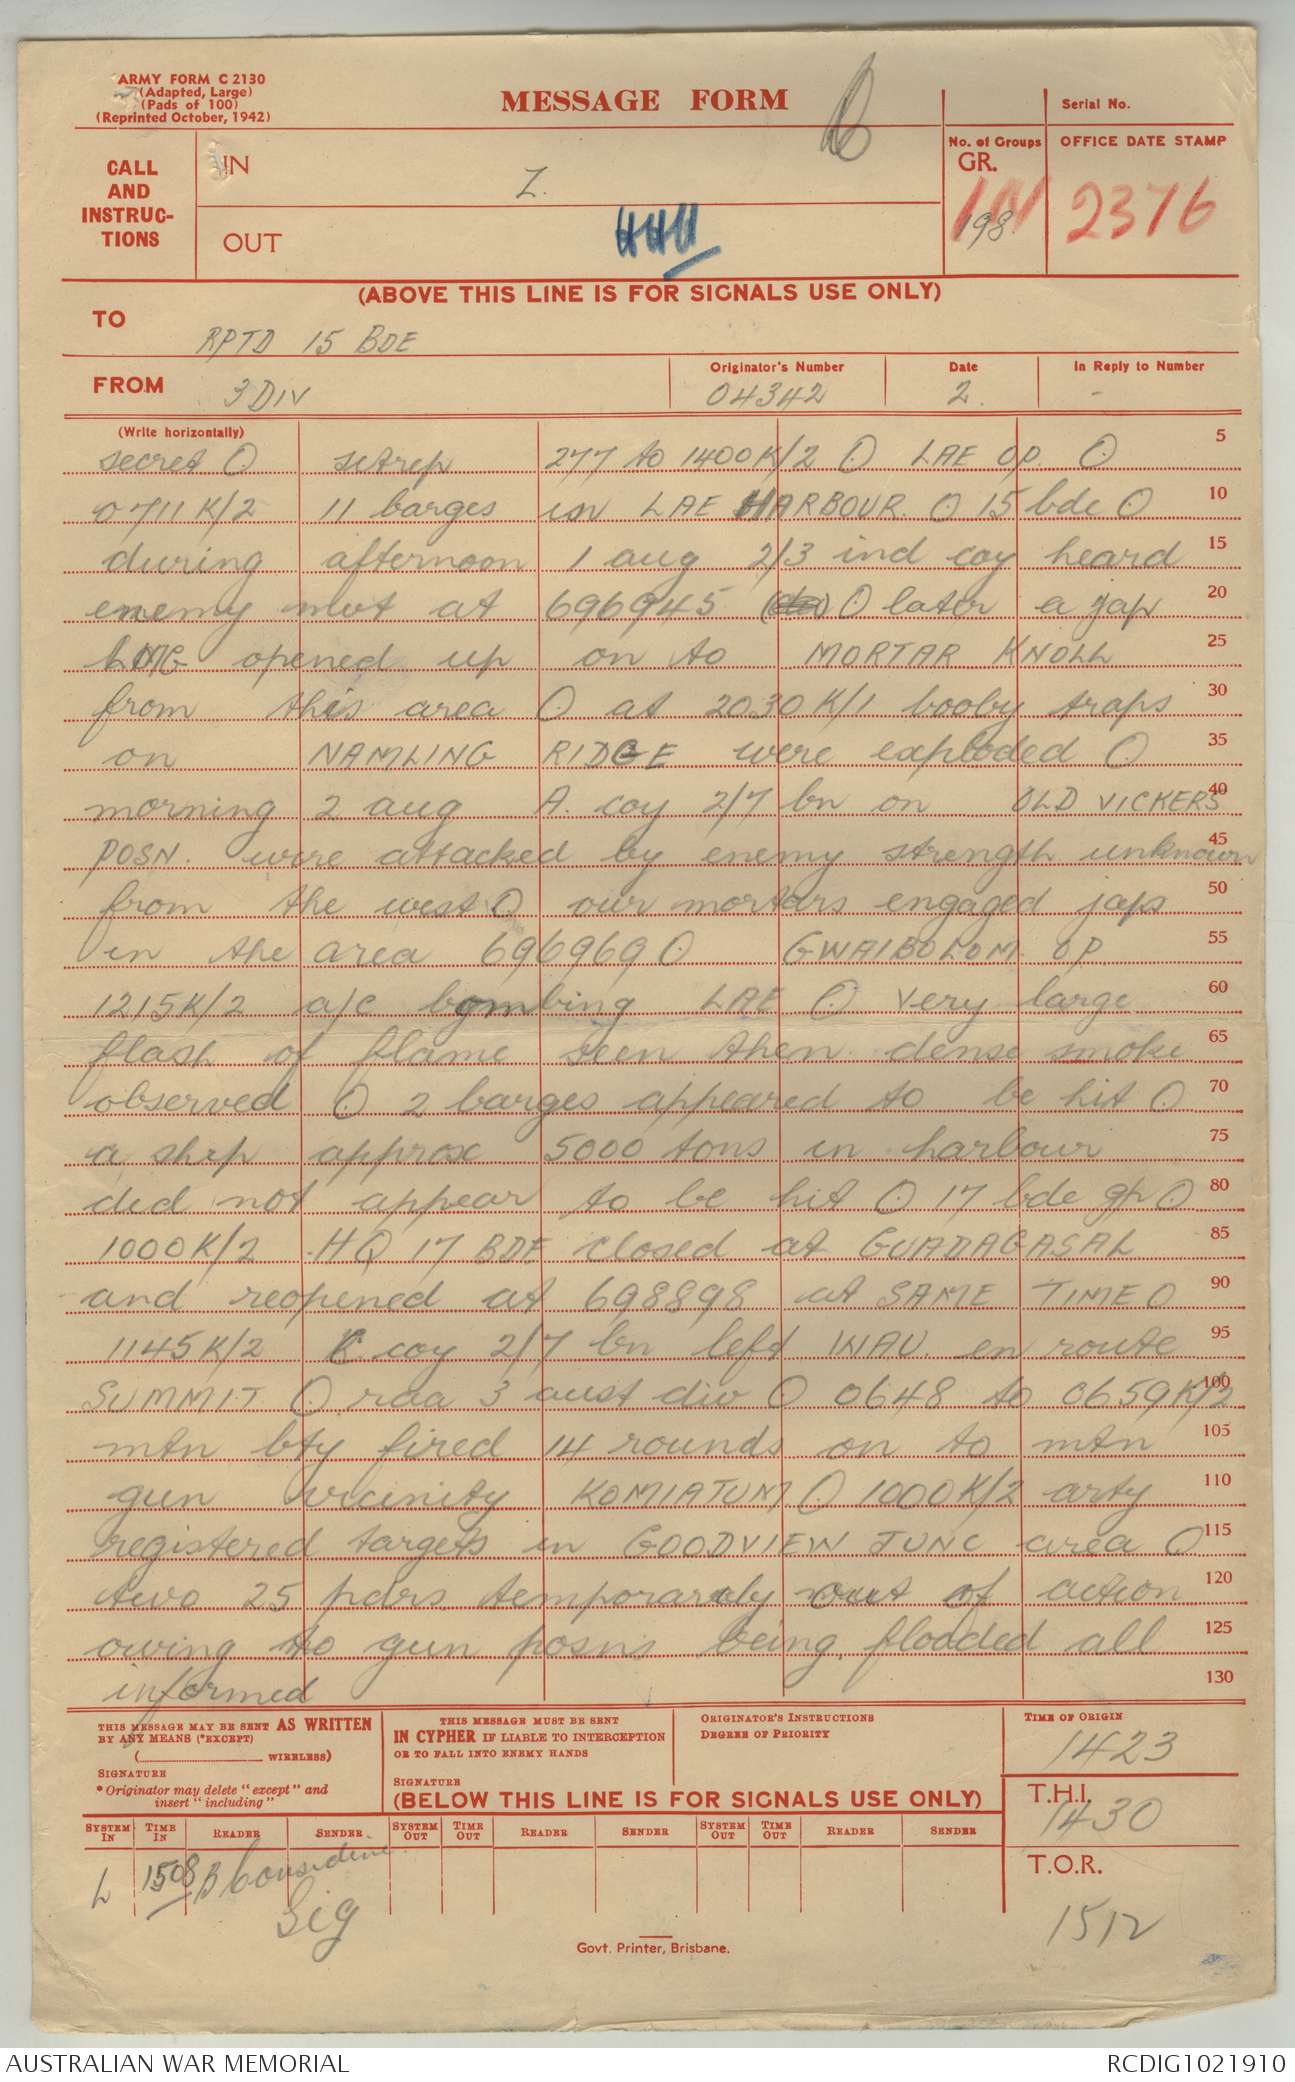 ARMY FORM C 2130
(Adapted, Large)
(Pads of 100)
(Reprinted October, 1942)
MESSAGE FORM
Serial No.
CALL AND INSTRUC-TIONS
IN
Z.
OUT
No. of Groups
GR.
198
OFFICE DATE STAMP
2376
(ABOVE THIS LINE IS FOR SIGNALS USE ONLY)
TO
RPTD 15 BDE
FROM
3 DIV
Originator's Number
04342
Date
2.
In Reply to Number
-
(Write horizontally)
secret O sitrep 277 to 1400K/2 O LAE OP. O 5
0711K/2 11 barges in LAE HARBOUR. O 15 bde O 10
during afternoon 1 aug 2/3 ind coy heard 15
enemy mvt at 696945 O later a jap 20
LMG opened up on to MORTAR KNOLL 25
from this area O at 2030K/1 booby traps 30
on NAMLING RIDGE were exploded O 35
morning 2 aug A. coy 2/7 bn on OLD VICKERS 40
POSN. were attacked by enemy strength unknown 45
from the west O our mortars engaged japs 50
in the area 696969 O GWAIBOLOM. OP 55
1215K/2 a/c bombing LAE O very large 60
flash of flame seen then dense smoke 65
observed O 2 barges appeared to be hit O 70
a ship approx 5000 tons in harbour 75
did not appear to be hit O 17 bde gp O 80
1000K/2 HQ 17 BDE closed at GUADAGASAL 85
and reopened at 698898 at SAME TIME O 90
1145K/2 C coy 2/7 bn left WAU. en route 95
SUMMIT O raa 3 aust div O 0648 to 0659K/2 100
mtn bty fired 14 rounds on to mtn 105
gun vicinity KOMIATUM O 1000K/2 arty 110
registered targets in GOODVIEW JUNC area O 115
two 25 pdrs temporarily out of action 120
owing to gun posns being flooded all 125
informed 130
THIS MESSAGE MAY BE SENT AS WRITTEN
BY ANY MEANS (*EXCEPT)
( WIRELESS)
SIGNATURE
* Originator may delete "except" and
insert "including"
THIS MESSAGE MUST BE SENT
IN CYPHER IF LIABLE TO INTERCEPTION
OR TO FALL INTO ENEMY HANDS
SIGNATURE
ORIGINATOR'S INSTRUCTIONS
DEGREE OF PRIORITY
TIME OF ORIGIN
1423
(BELOW THIS LINE IS FOR SIGNALS USE ONLY)
T.H.I.
1430
SYSTEM IN TIME IN READER SENDER SYSTEM OUT TIME OUT READER SENDER SYSTEM OUT TIME OUT READER SENDER
L 1508 B Considine
Sig
T.O.R.
1512
Govt. Printer, Brisbane.
AUSTRALIAN WAR MEMORIAL
RCDIG1021910